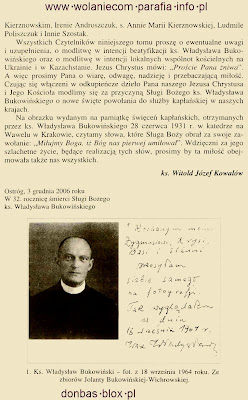 www·wolaniecom·parafia·info·pl
Kierznowskim, Irenie Androszczuk, s. Annie Marii Kierznowskiej, Ludmile
Poliszczuk i Innie Szostak.
Wszystkich Czytelników niniejszego tomu proszę o ewentualne uwagi
i uzupełnienia, o modlitwę w intencji beatyfikacji ks. Władysława Buko-
wińskiego oraz o modlitwę w intencji lokalnych wspólnot kościelnych na
Ukrainie i w Kazachstanie. Jezus Chrystus mówi: „Proście Pana żniwa".
A więc prosimy Pana o wiarę, odwagę, nadzieję i przebaczającą miłość.
Czując się włączeni w odkupieńcze dzieło Pana naszego Jezusa Chrystusa
i Jego Kościoła modlimy się za przyczyną Sługi Bożego ks. Władysława
Bukowińskiego o nowe święte powołania do służby kapłańskiej w naszych
krajach.
Na obrazku wydanym na pamiątkę święceń kapłańskich, otrzymanych
przez ks. Władysława Bukowińskiego 28 czerwca 1931 r. w katedrze na
Wawelu w Krakowie, czytamy słowa, które Sługa Boży obrał za swoje za-
wołanie: „Miłujmy Boga, iż Bóg nas pierwej umiłował". Wdzięczni za jego
szlachetne życie, będące realizacją tych słów, prosimy by ta miłość obej-
mowała także nas wszystkich.
ks. Witold Józef Kowalów
Ostróg, 3 grudnia 2006 roku
W 32. rocznicę śmierci Sługi Bożego
ks. Władysława Bukowińskiego
Kochanym moim
posyłam
siebie samego
na fotografii
Tak wyglądałem
w dniu
18 września 1964 r.
1. Ks. Władysław Bukowiński – fot. z 18 września 1964 roku. Ze
zbiorów Jolanty Bukowińskiej-Wichrowskiej.
donbas·blox·pl